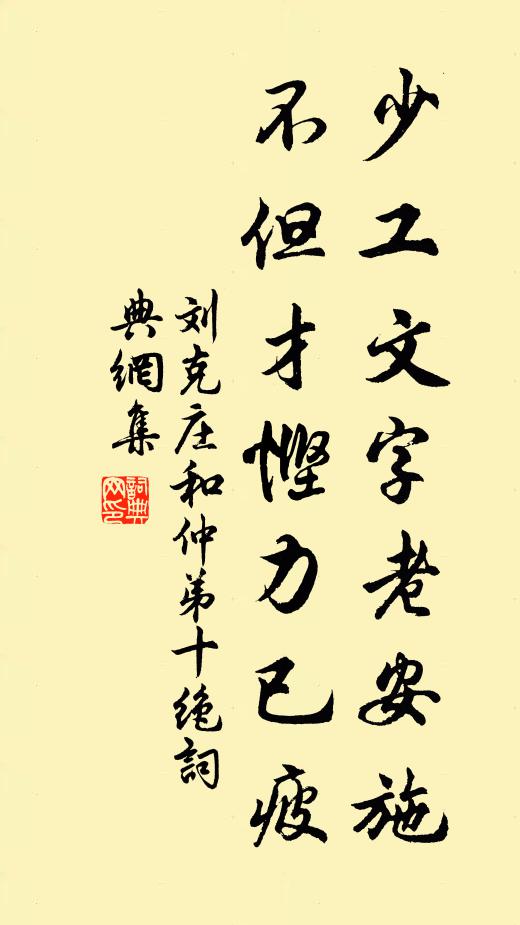 少工文字老安施
不但才慳力已疲
刘克庄和仲弟十绝詞
典網集
詞典网印